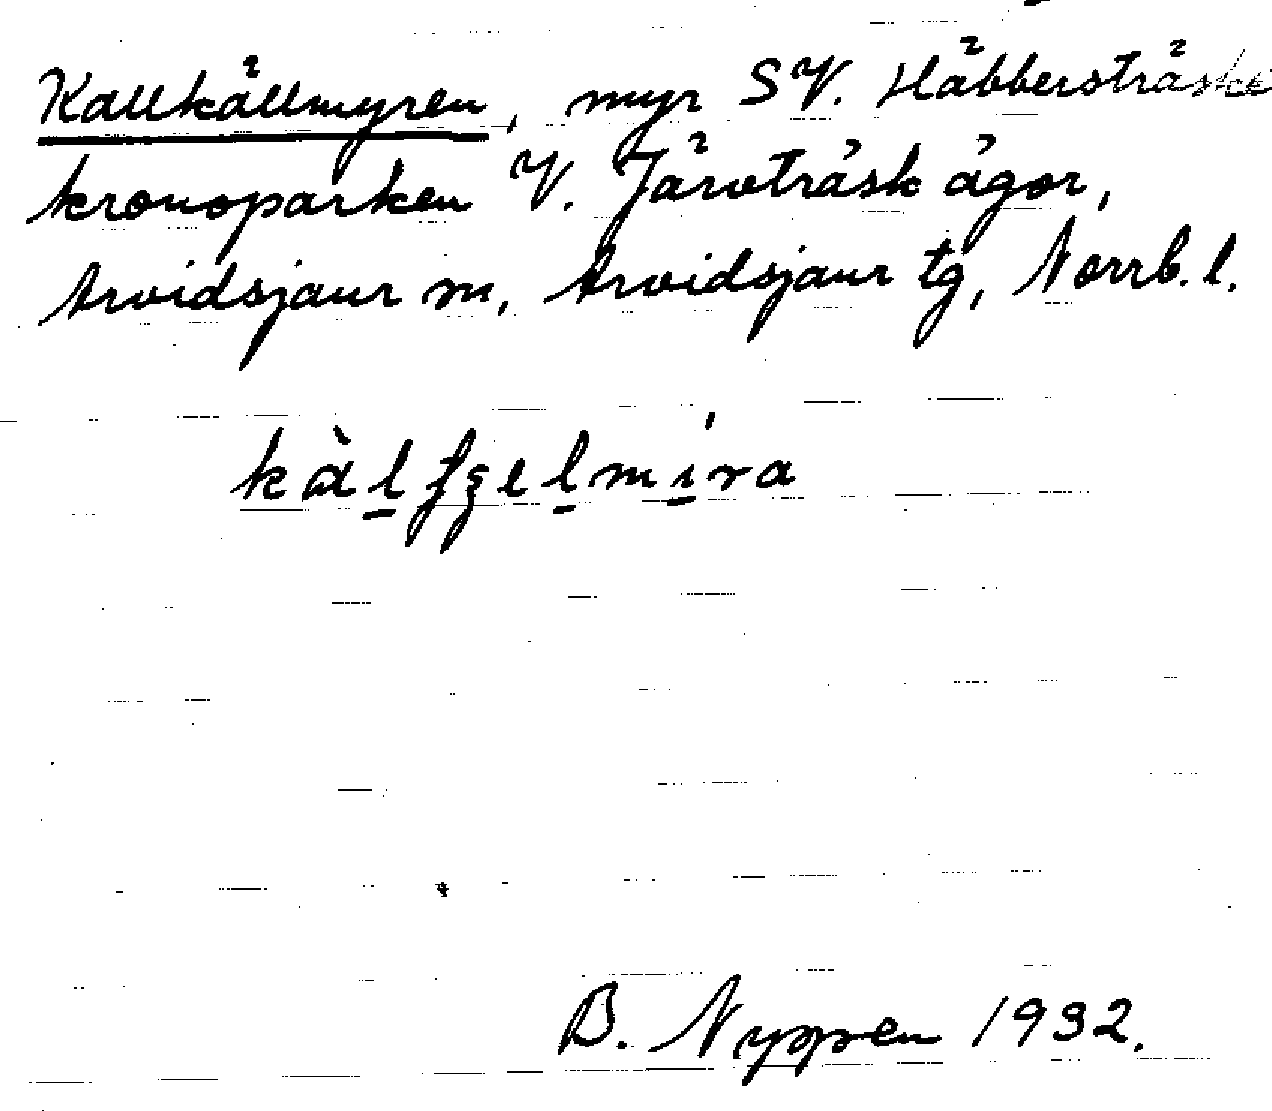 Kallkällmyren, myr SV. Häbbersträske
kronoparken V. Järvträsk ägor,
Arvidsjaur sn, Arvidsjaur tg, Norrb. l.
B. Nyppen 1932.